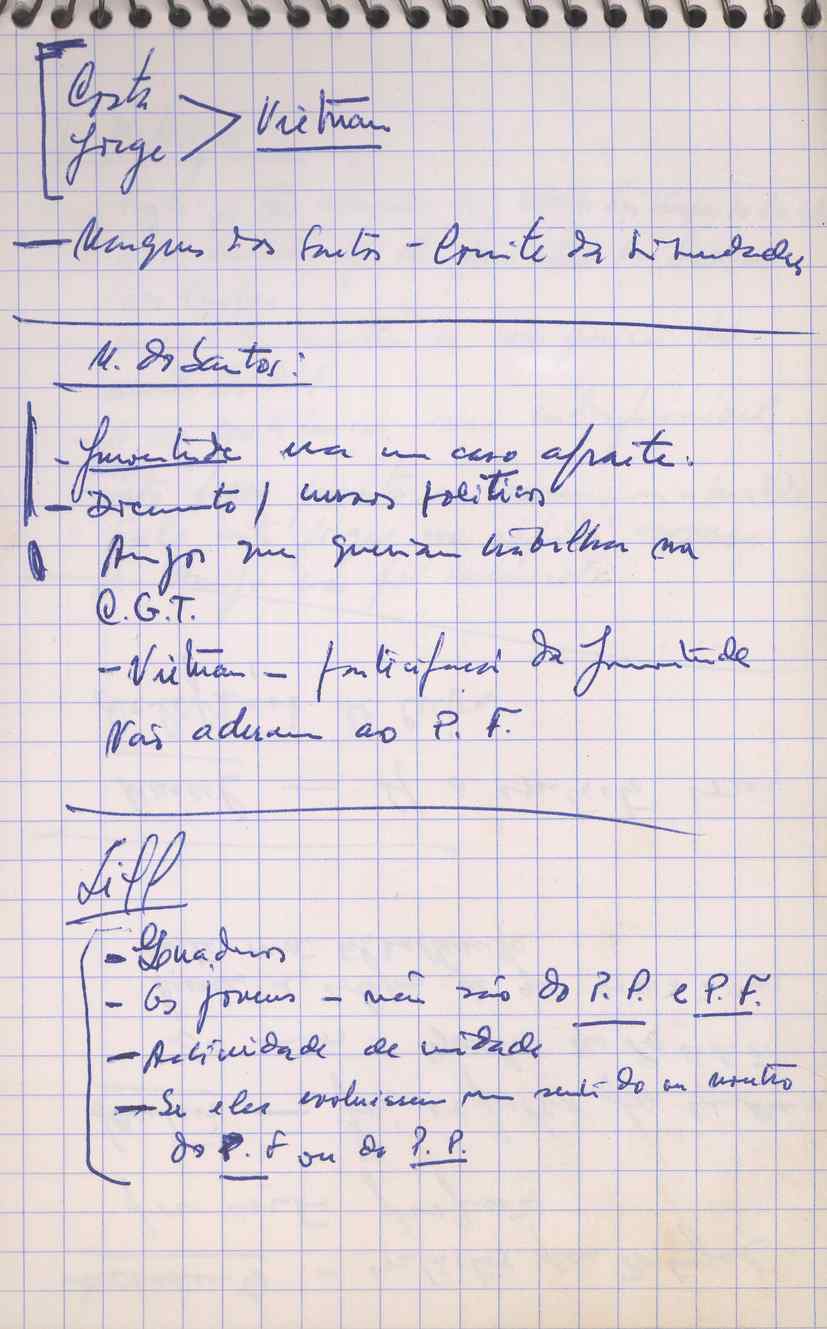 Costa
Jorge > Vietnam
— Marques dos Santos – Comité da
M. dos Santos:
- Juventude era um caso aparte.
- Documento / cursos políticos
que queriam trabalhar na
C.G.T.
- Vietnam – participação da Juventude
Não aderem ao P. F.
- Os jovens – não são do P. P. e P. F.
- Actividade de unidade
- Se eles evoluissem num sentido ou noutro
do P. F ou do P. P.